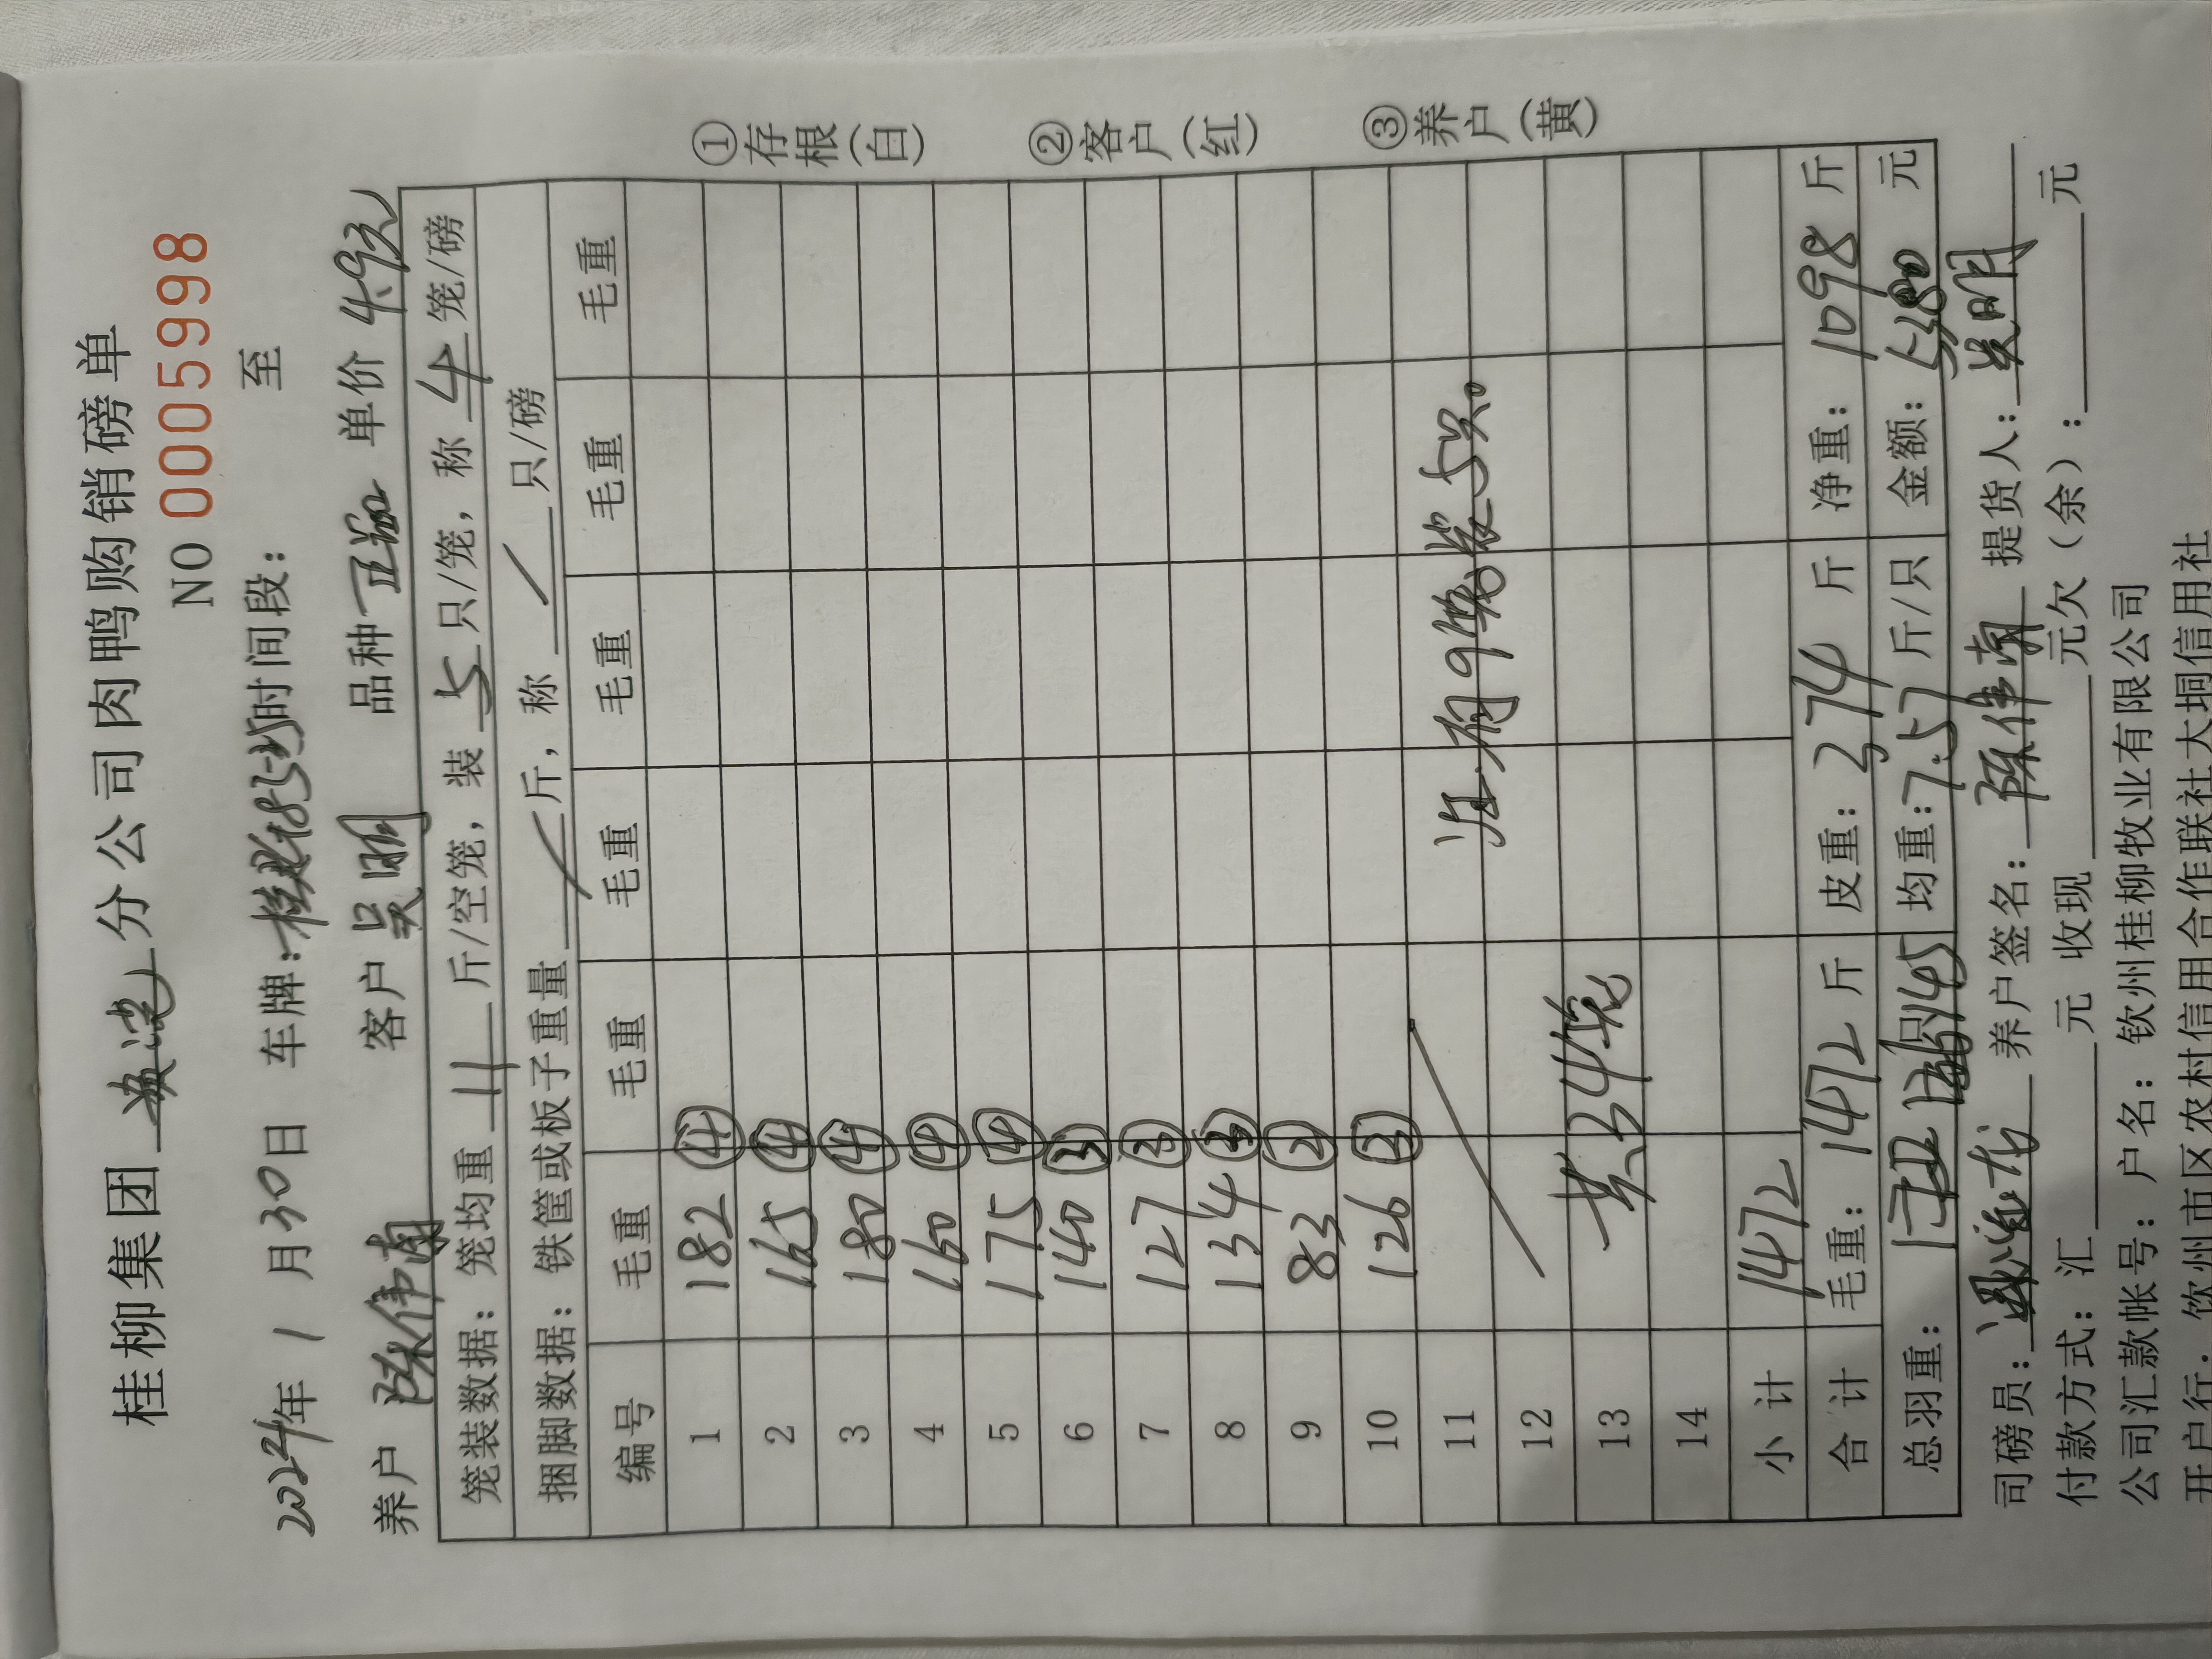 桂柳集团 分公司肉鸭购销磅单
NO 0005998
2024年 1 月 30 日 车牌: 时间段: 至
养户 陈伟南 客户 吴明 品种 单价 4.9元
笼装数据: 笼均重 11 斤/空笼, 装 5 只/笼, 称 4 笼/磅
捆脚数据: 铁筐或板子重量 / 斤, 称 / 只/磅
编号 毛重 毛重 毛重 毛重 毛重 毛重
1 182 ④
2 165 ④
3 180 ④
4 160 ④
5 175 ④
6 140 ③
7 127 ③
8 134 ③
9 83 ②
10 126 ③
11 注:有9笼装5只。
12
13 共34笼
14
小计 1472
合计 毛重: 1472 斤 皮重: 374 斤 净重: 1098 斤
总羽重: 只 145 均重: 7.57 斤/只 金额: 5380 元
司磅员: 养户签名: 陈伟南 提货人: 吴明
付款方式: 汇 元 收现 元欠(余): 元
公司汇款帐号: 户名: 钦州桂柳牧业有限公司
开户行: 钦州市区农村信用合作联社大垌信用社
①存根(白)
②客户(红)
③养户(黄)